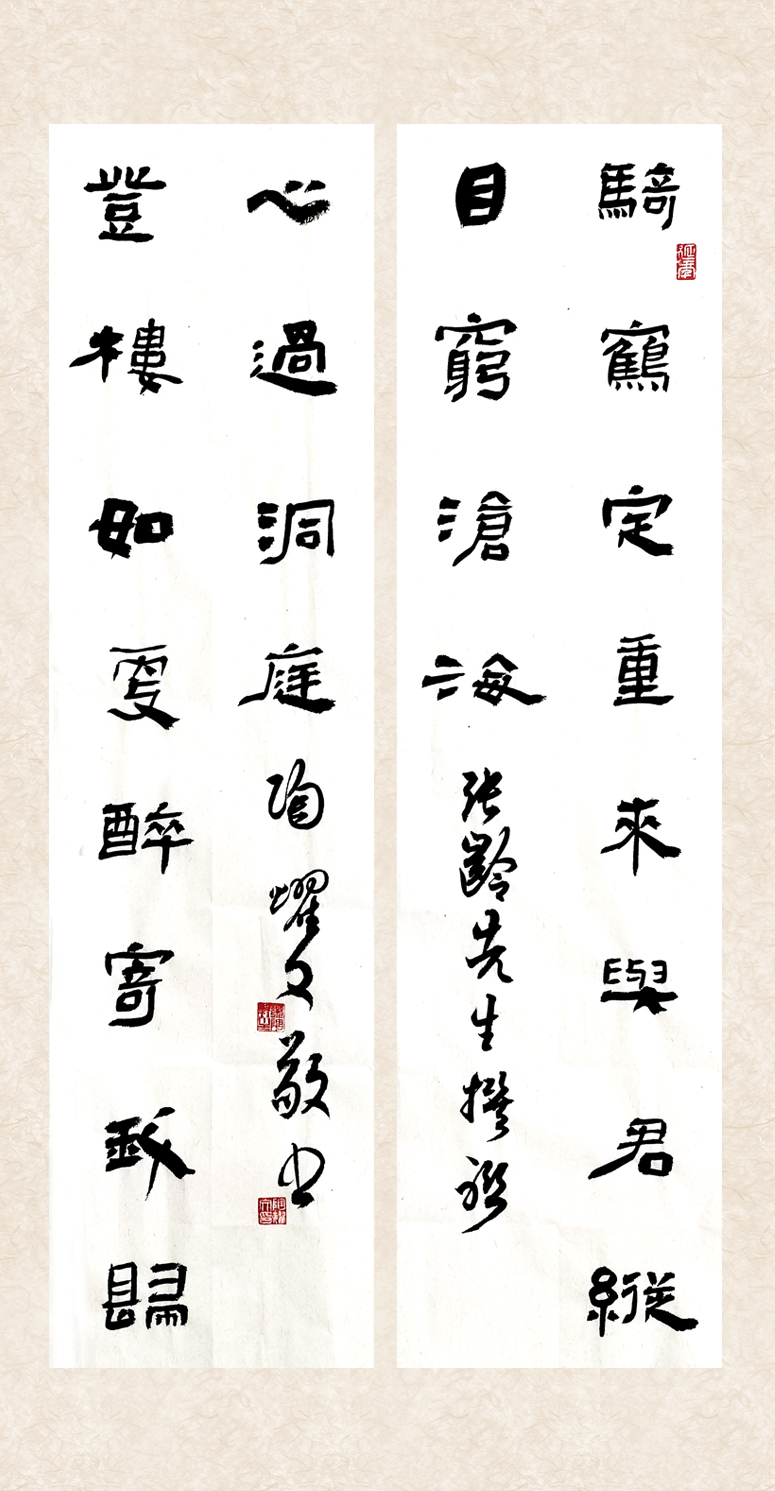 騎鶴定重來與君縱
目窮滄海
张齡先生撰联
登樓如更醉寄我歸
心過洞庭
陶燿文敬书